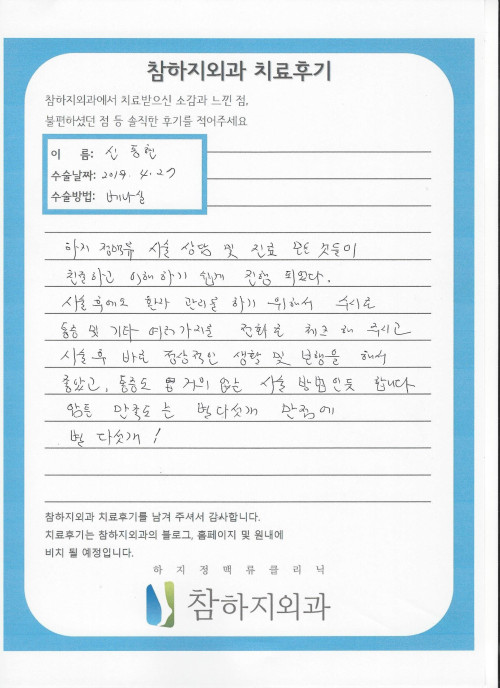 참하지외과 치료후기
참하지외과에서 치료받으신 소감과 느낀 점,
불편하셨던 점 등 솔직한 후기를 적어주세요
이 름: 신동헌
수술날짜: 2019. 4. 27
수술방법: 베나실
하지 정맥류 시술 상담 및 진료 모든 것들이
친절하고 이해하기 쉽게 진행 되었다.
시술 후에도 환자 관리를 하기 위해서 수시로
통증 및 기타 여러가지를 전화로 체크 해 주시고
시술 후 바로 정상적인 생활 및 보행을 해서
좋았고, 통증도 거의 없는 시술 방법인듯 합니다
암튼 만족도는 별다섯개 만점에
별 다섯개!
참하지외과 치료후기를 남겨 주셔서 감사합니다.
치료후기는 참하지외과의 블로그, 홈페이지 및 원내에
비치 될 예정입니다.
하지정맥류클리닉
참하지외과